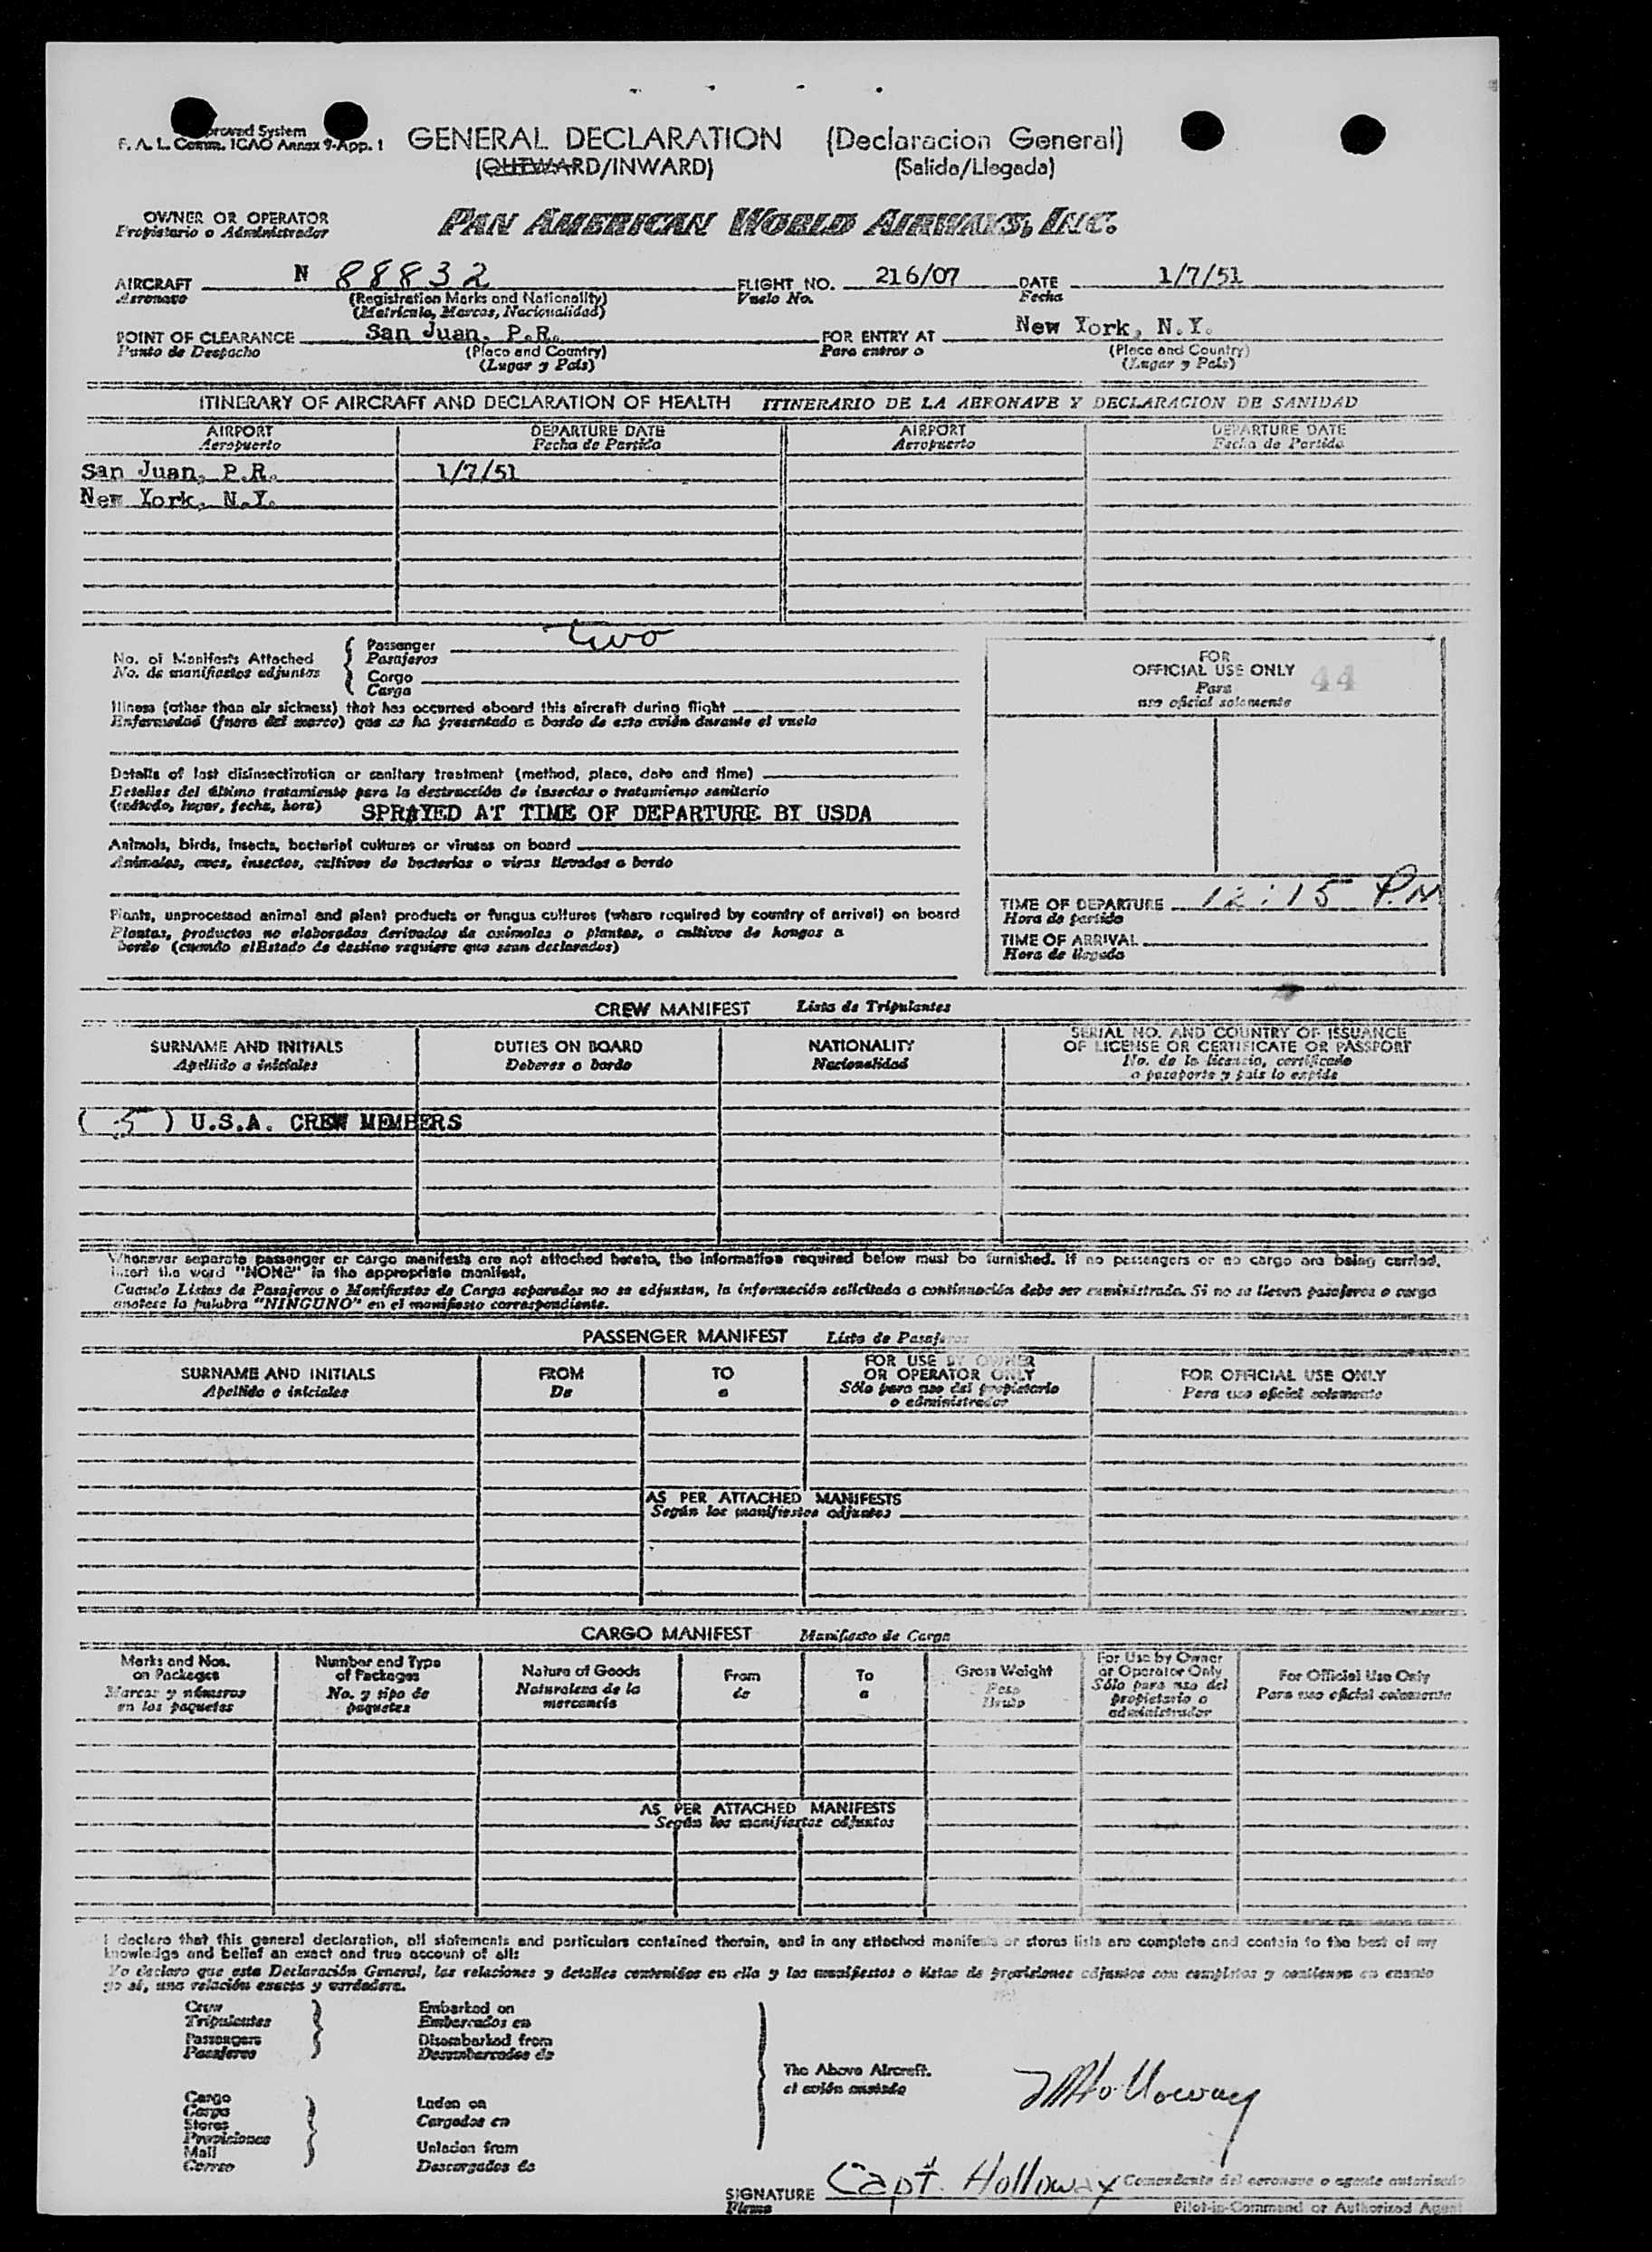 proved System
F. A. L. Comm. ICAO Annex 9-App. 1
GENERAL DECLARATION (Declaracion General)
(OUTWARD/INWARD) (Salida/Llegada)
OWNER OR OPERATOR
Propietario o Administrador
PAN AMERICAN WORLD AIRWAYS, INC.
AIRCRAFT N 88832 FLIGHT NO. 216/07 DATE 1/7/51
Aeronave (Registration Marks and Nationality) Vuelo No. Fecha
(Matricula, Marcas, Nacionalidad)
POINT OF CLEARANCE San Juan, P.R. FOR ENTRY AT New York, N.Y.
Punto de Despacho (Place and Country) Para entrar a (Place and Country)
(Lugar y Pais) (Lugar y Pais)
ITINERARY OF AIRCRAFT AND DECLARATION OF HEALTH ITINERARIO DE LA AERONAVE Y DECLARACION DE SANIDAD
AIRPORT DEPARTURE DATE AIRPORT DEPARTURE DATE
Aeropuerto Fecha de Partida Aeropuerto Fecha de Partida
San Juan, P.R. 1/7/51
New York, N.Y.
No. of Manifests Attached
No. de manifiestos adjuntos
Passenger two
Pasajeros
Cargo
Carga
Illness (other than air sickness) that has occurred aboard this aircraft during flight
Enfermedad (fuera del mareo) que se ha presentado a bordo de este avión durante el vuelo
Details of last disinsectization or sanitary treatment (method, place, date and time)
Detalles del último tratamiento para la destrucción de insectos o tratamiento sanitario
(método, lugar, fecha, hora) SPRAYED AT TIME OF DEPARTURE BY USDA
Animals, birds, insects, bacterial cultures or viruses on board
Animales, aves, insectos, cultivos de bacterias o virus llevados a bordo
Plants, unprocessed animal and plant products or fungus cultures (where required by country of arrival) on board
Plantas, productos no elaborados derivados de animales o plantas, o cultivos de hongos a
bordo (cuando elEstado de destino requiere que sean declarados)
FOR
OFFICIAL USE ONLY 44
Para
uso oficial solamente
TIME OF DEPARTURE 12:15 P.M
Hora de partida
TIME OF ARRIVAL
Hora de llegada
CREW MANIFEST Lista de Tripulantes
SURNAME AND INITIALS DUTIES ON BOARD NATIONALITY SERIAL NO. AND COUNTRY OF ISSUANCE
OF LICENSE OR CERTIFICATE OR PASSPORT
Apellido e iniciales Deberes a bordo Nacionalidad No. de la licencia, certificado
o pasaporte y pais lo expide
( 5 ) U.S.A. CREW MEMBERS
Whenever separate passenger or cargo manifests are not attached hereto, the information required below must be furnished. If no passengers or no cargo are being carried,
insert the word "NONE" in the appropriate manifest.
Cuando Listas de Pasajeros o Manifiestos de Carga separados no se adjuntan, la información solicitada a continuación debe ser suministrada. Si no se llevan pasajeros o carga
anotese la palabra "NINGUNO" en el manifiesto correspondiente.
PASSENGER MANIFEST Lista de Pasajeros
SURNAME AND INITIALS FROM TO FOR USE BY OWNER
OR OPERATOR ONLY FOR OFFICIAL USE ONLY
Apellido e iniciales De a Sólo para uso del propietario
o administrador Para uso oficial solamente
AS PER ATTACHED MANIFESTS
Según los manifiestos adjuntos
CARGO MANIFEST Manifiesto de Carga
Marks and Nos.
on Packages
Marcas y números
en los paquetes
Number and Type
of Packages
No. y tipo de
paquetes
Nature of Goods
Naturaleza de la
mercancía
From
de
To
a
Gross Weight
Peso
Bruto
For Use by Owner
or Operator Only
Sólo para uso del
propietario o
administrador
For Official Use Only
Para uso oficial solamente
AS PER ATTACHED MANIFESTS
Según los manifiestos adjuntos
I declare that this general declaration, all statements and particulars contained therein, and in any attached manifests or stores lists are complete and contain to the best of my
knowledge and belief an exact and true account of all:
Yo declaro que esta Declaración General, las relaciones y detalles contenidos en ella y los manifiestos o listas de provisiones adjuntos son completos y contienen en cuanto
yo sé, una relación exacta y verdadera.
Crew Embarked on
Tripulantes Embarcados en
Passengers Disembarked from
Pasajeros Desembarcados de
The Above Aircraft.
el avión
Cargo
Carga
Stores
Provisiones
Mail
Correo
Laden on
Cargados en
Unladen from
Descargados de
Holloway
SIGNATURE Capt. Holloway Comandante del aeronave o agente autorizado
Firma Pilot-in-Command or Authorized Agent